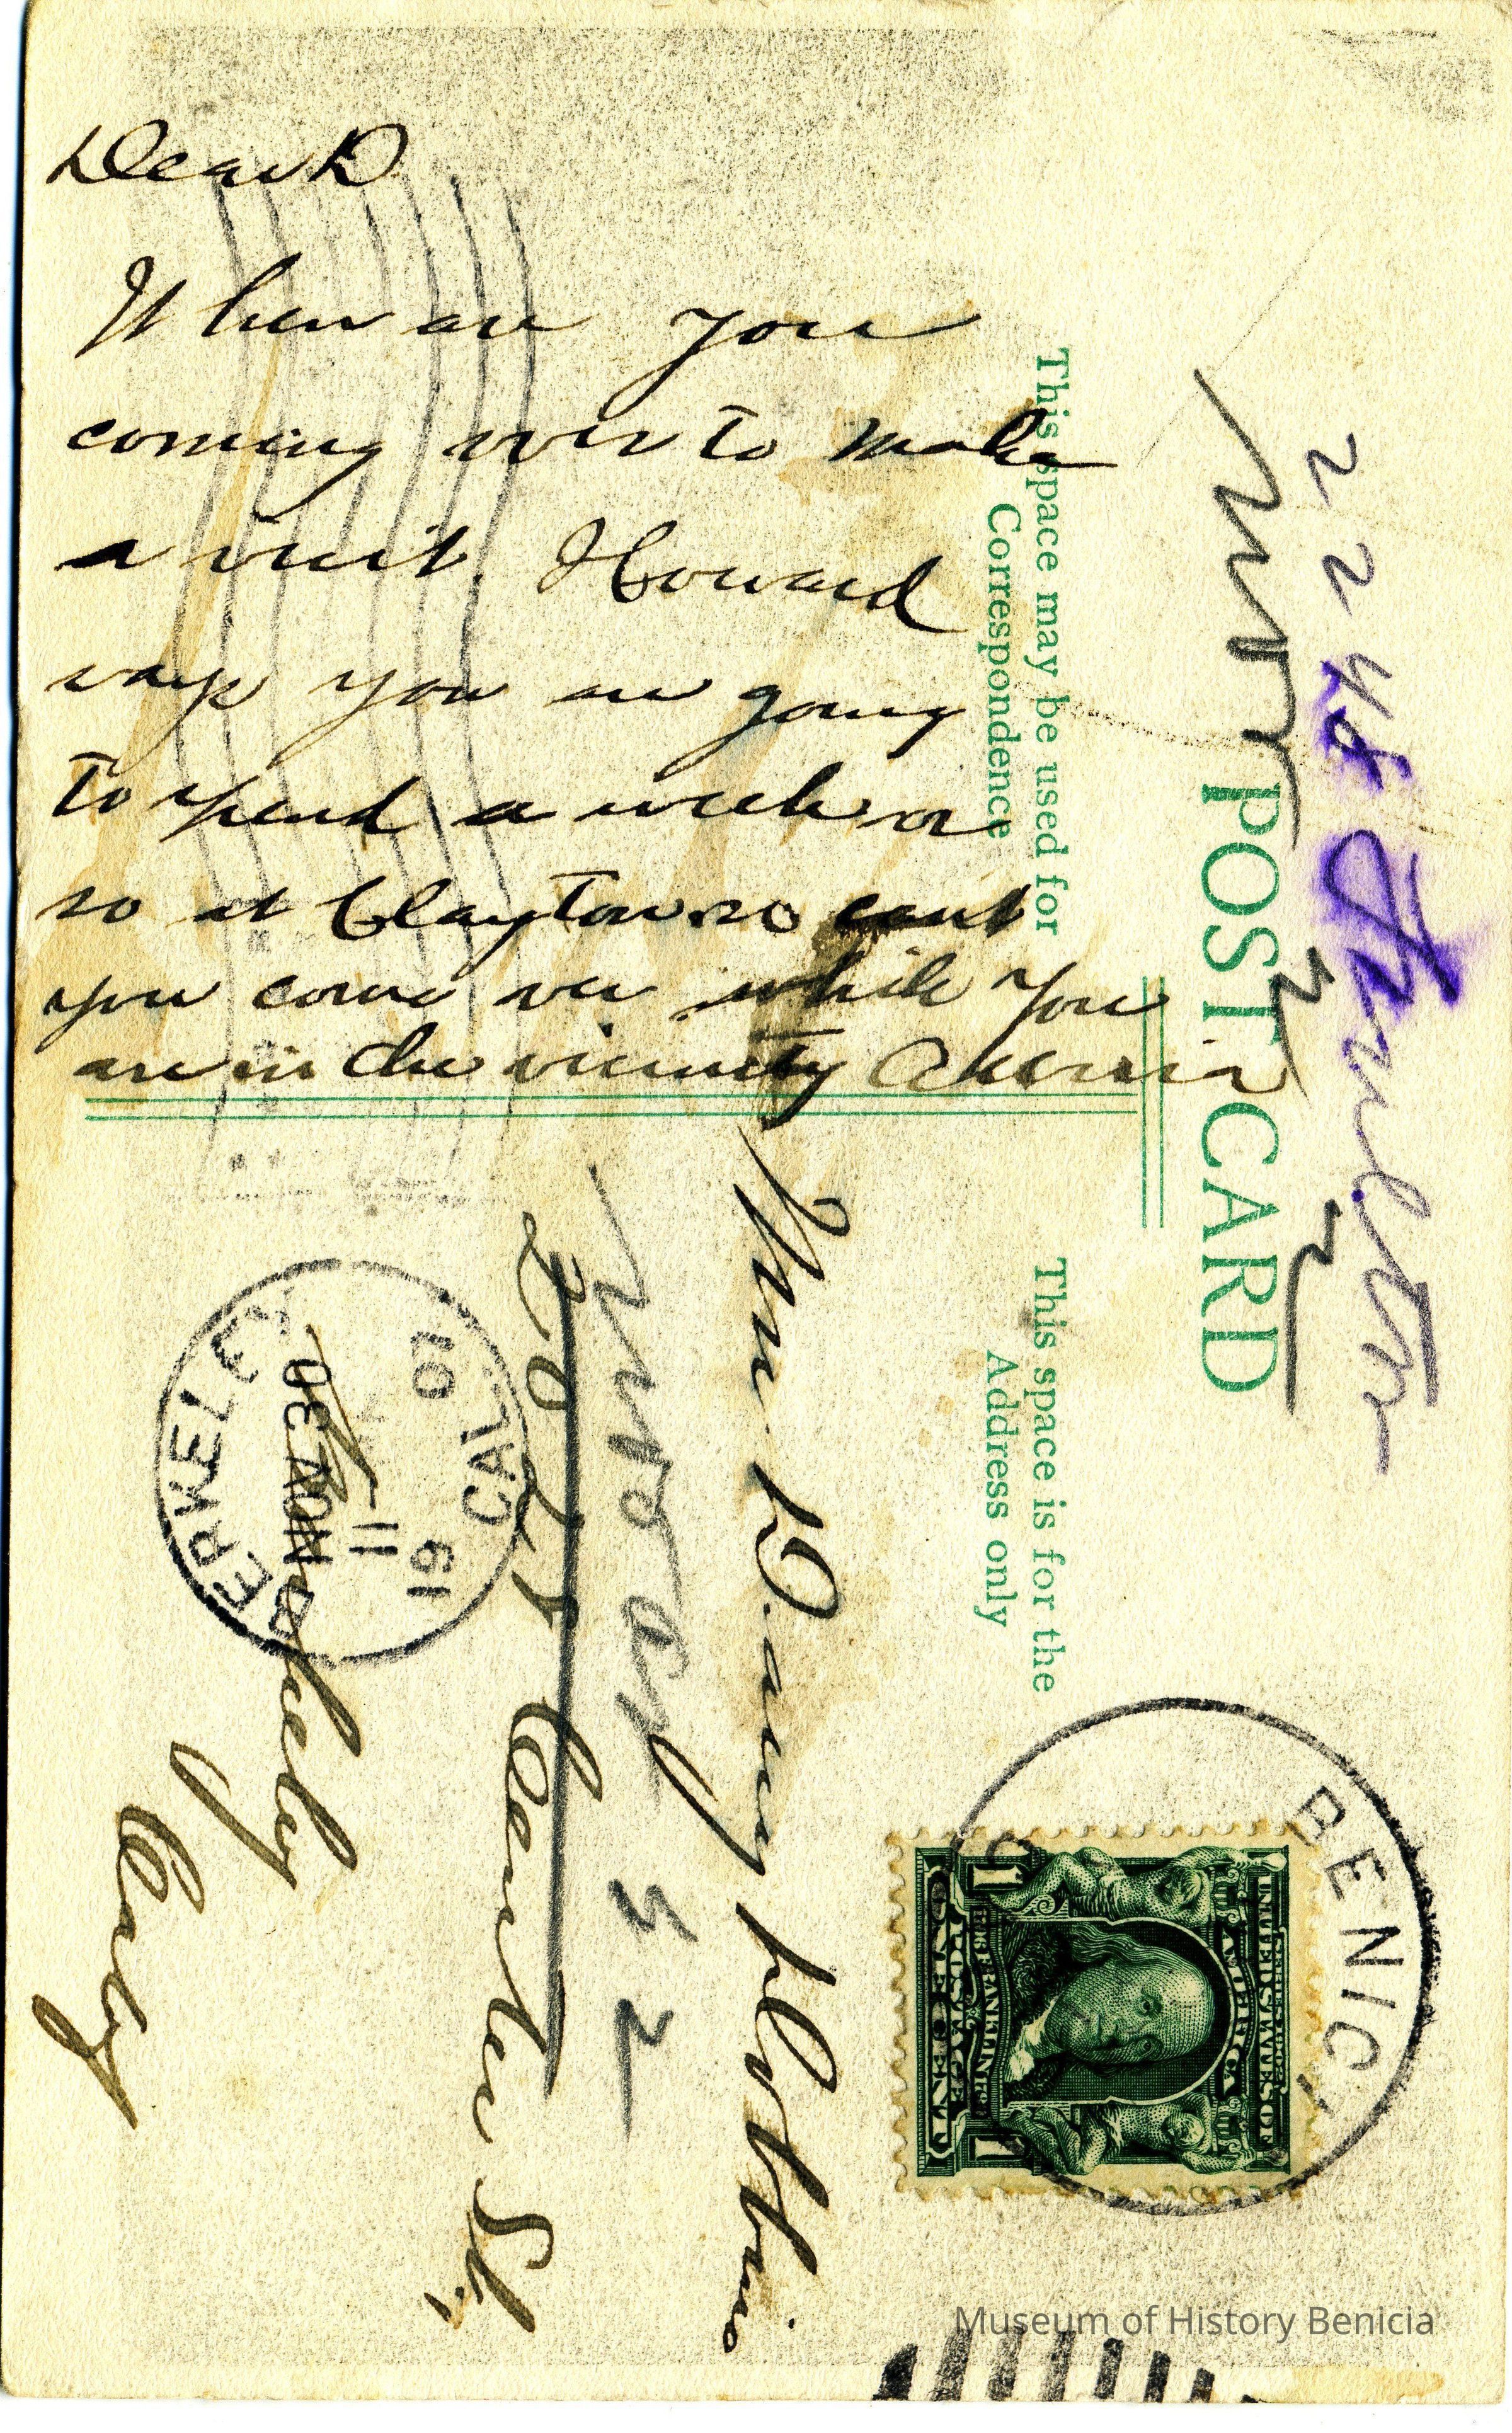 Dear D
When are you
coming over to make
a visit. Howard
says you are going
to spend a week or
so at Clayton so cant
you come over while you
are in the vicinity
This space may be used for
Correspondence
POST CARD
This space is for the
Address only
2248 Fulton
2
2
Mr. Dany
42
2027 Center St.,
Berkeley
Caly
BERKELEY CAL.
NOV 30
11
1907
BENICI
UNITED STATES OF
AMERICA
FRANKLIN
POSTAGE
1 ONE CENT 1
Museum of History Benicia